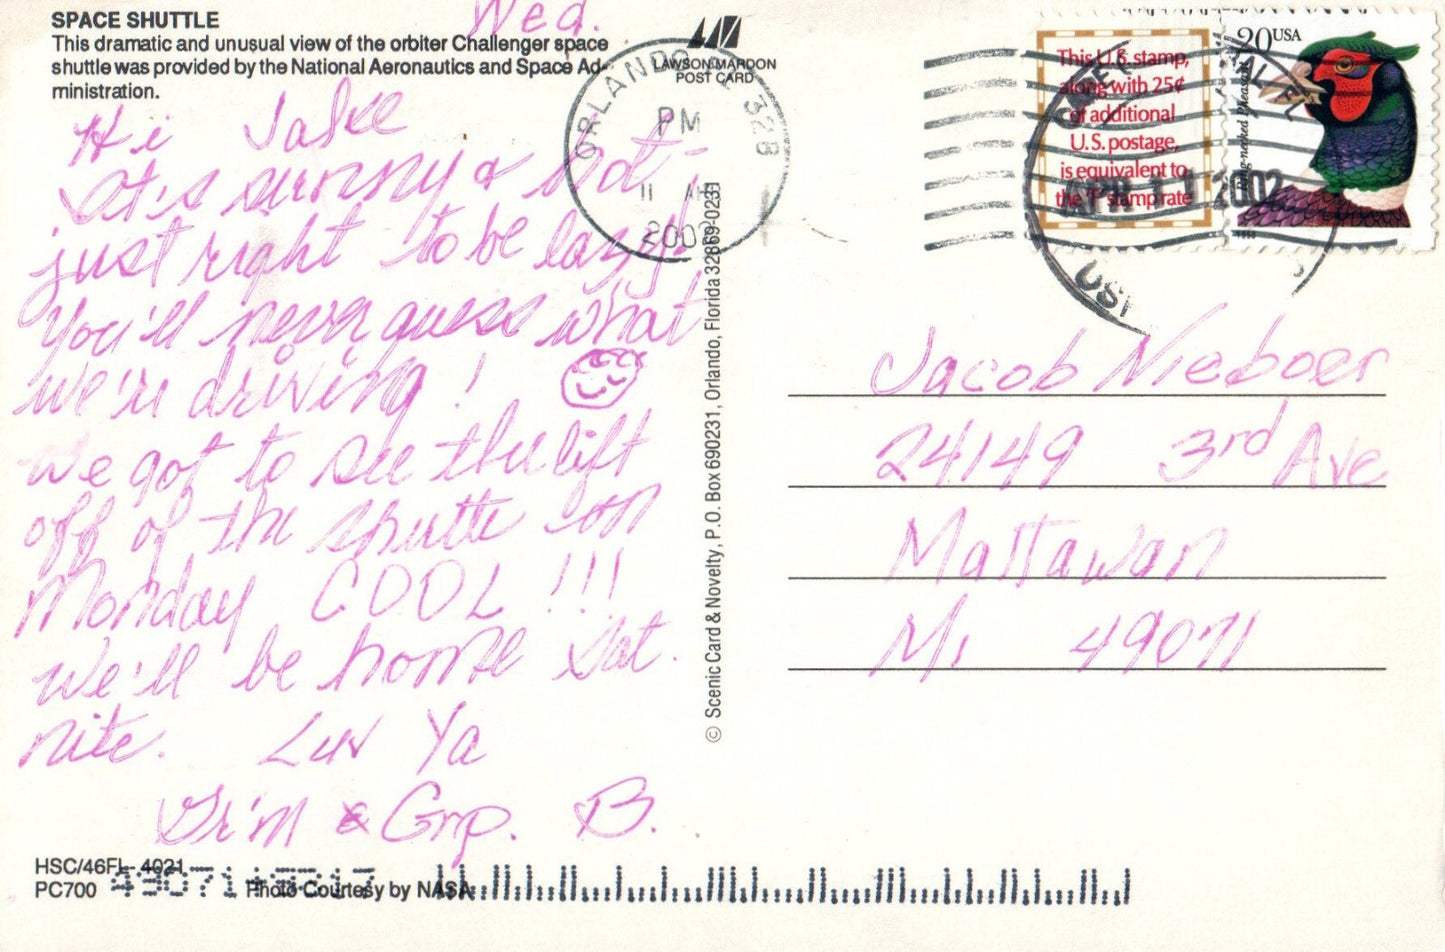 SPACE SHUTTLE
This dramatic and unusual view of the orbiter Challenger space
shuttle was provided by the National Aeronautics and Space Ad-
ministration.
LAWSON MARDON
POST CARD
Wed.
Hi Jake
It's sunny & hot -
just right to be lazy!
You'll never guess what
we're driving!
We got to see the lift
off of the shuttle on
Monday COOL !!!
We'll be home Sat.
nite. Luv Ya
Gr'm & Grp. B.
HSC/46FL 4021
PC700
49071
Photo Courtesy by NASA
© Scenic Card & Novelty, P.O. Box 690231, Orlando, Florida 32869-0231
ORLANDO FL 328
PM
11 AP
2002
This U.S. stamp,
along with 25¢
of additional
U.S. postage,
is equivalent to
the 'F' stamp rate
20 USA
Ring-necked Pheasant
APR 11 2002
Jacob Nieboer
24149 3rd Ave
Mattawan
Mi 49071